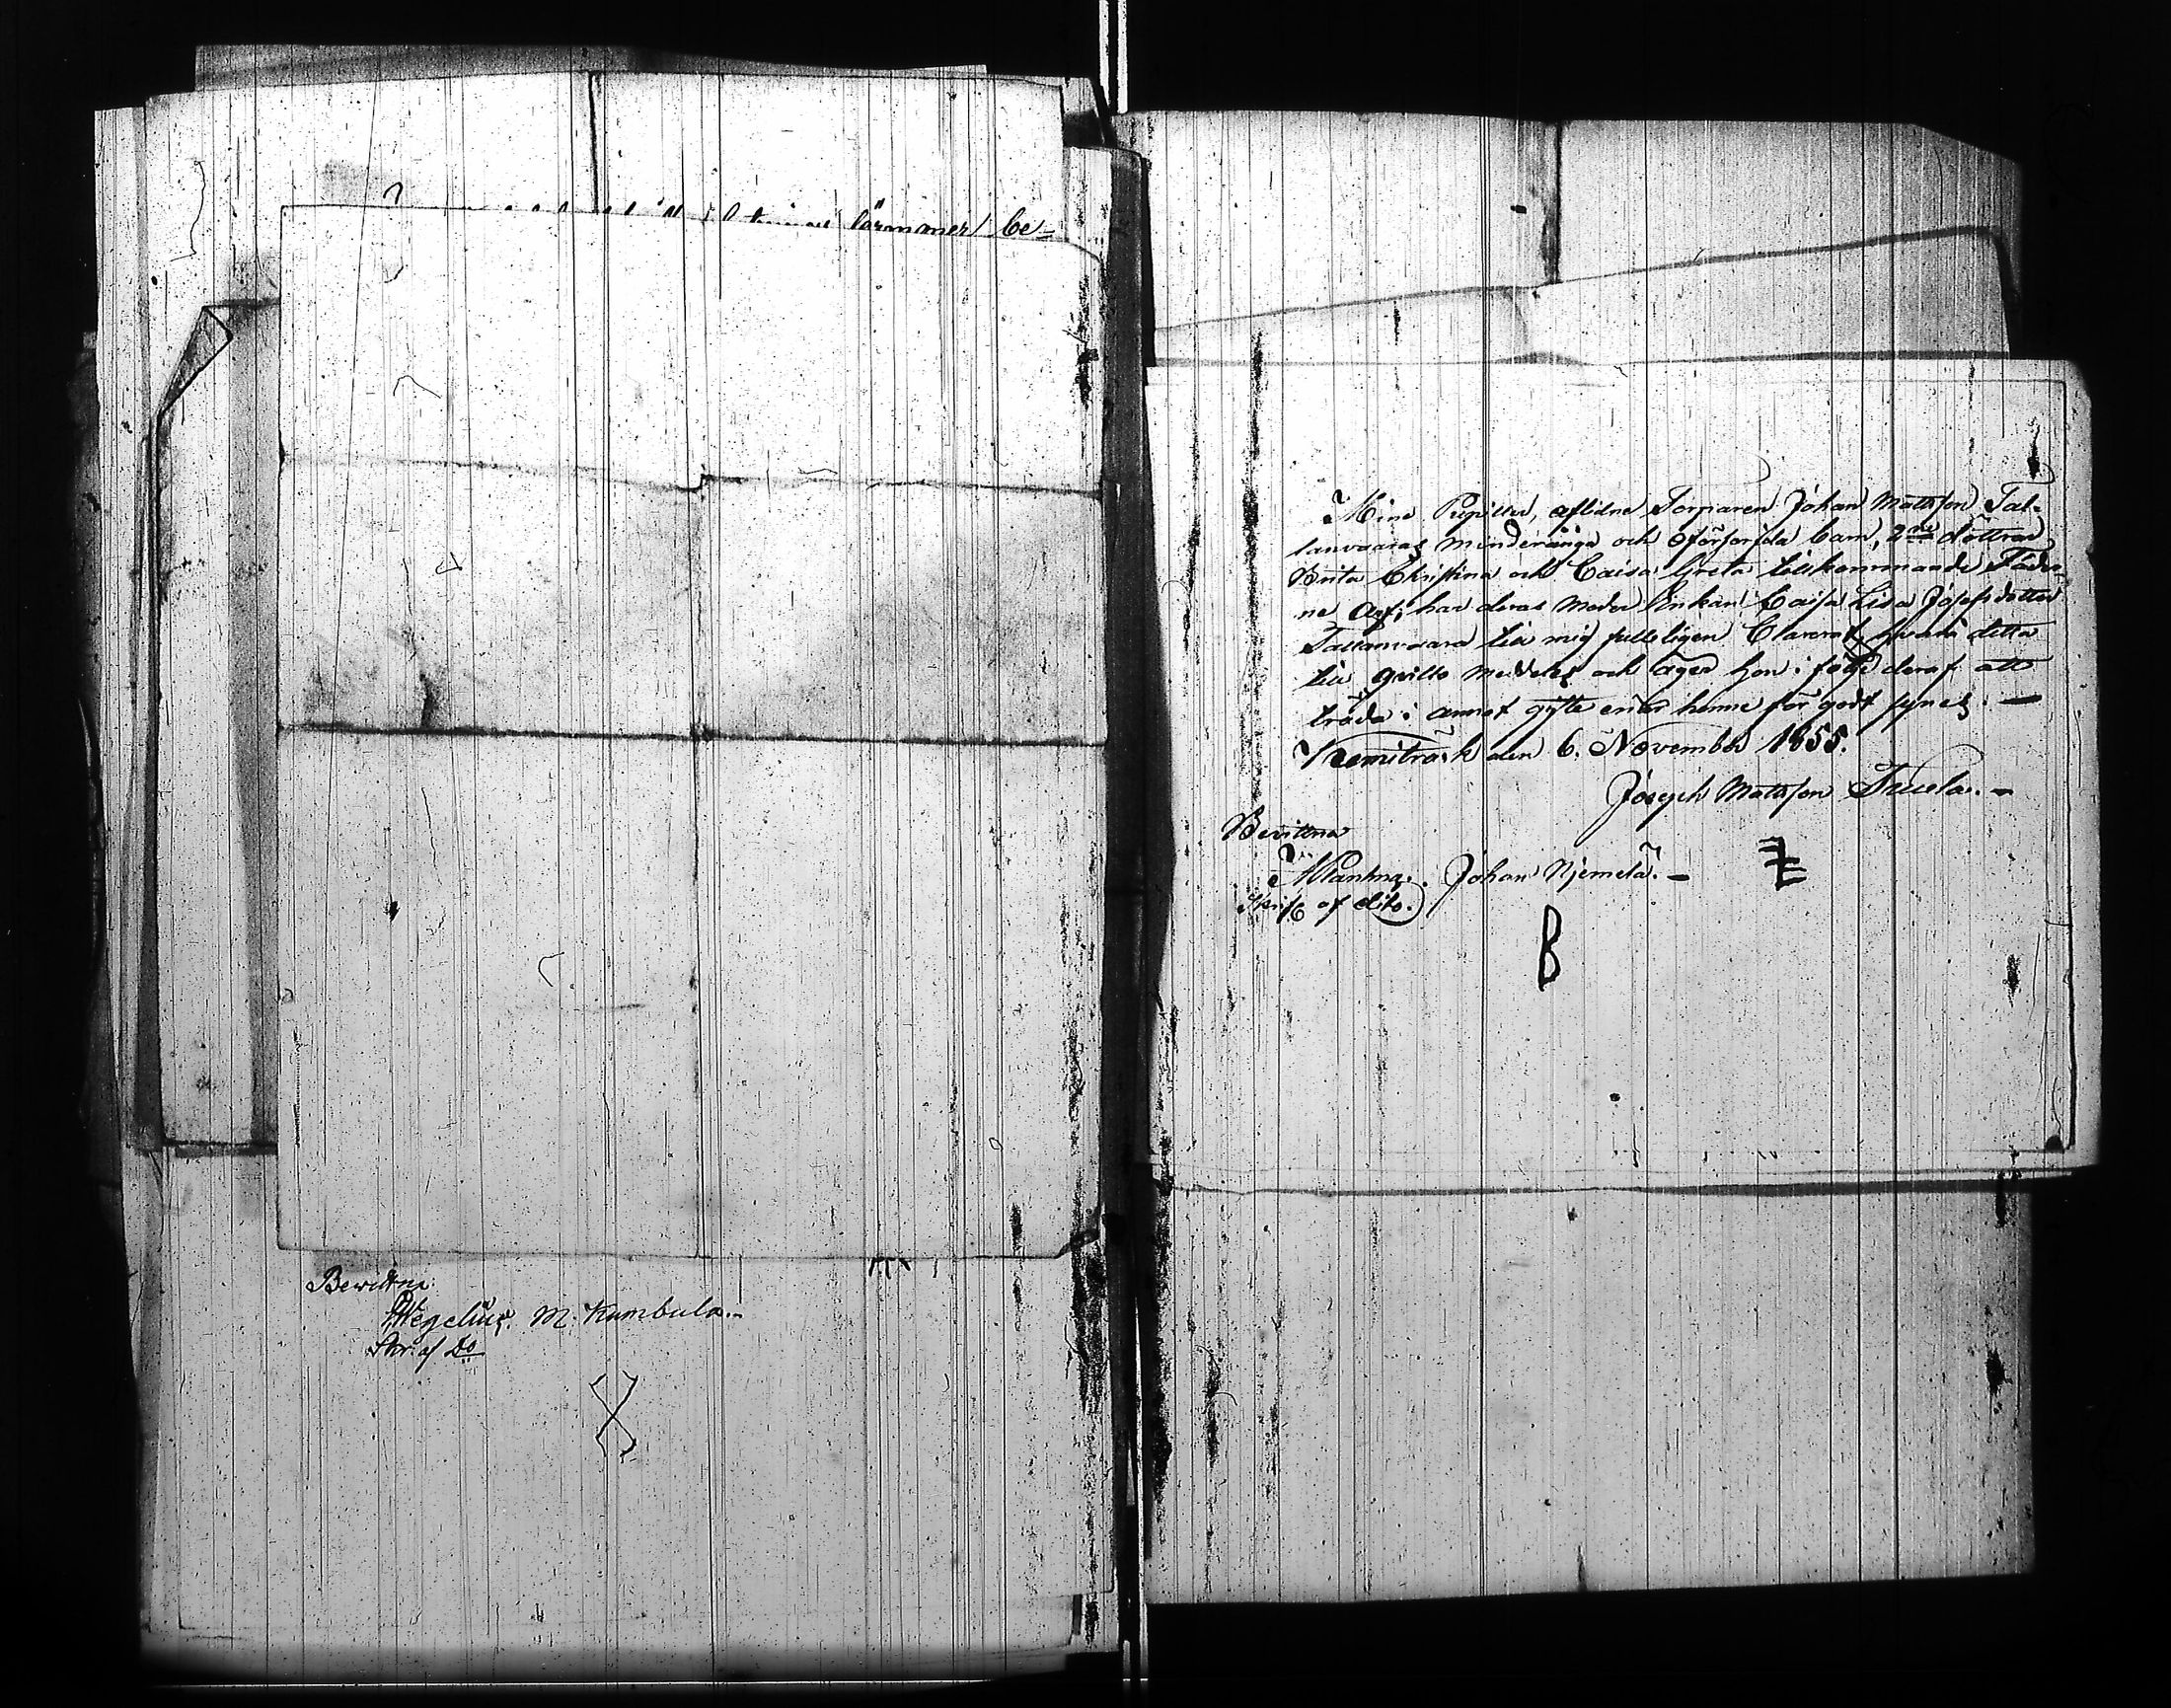 förmåner be-
Bewittna:
Wegelius. M. Kumbula.-
Skr. af Do
Mina Pupiller, aflidne Torparen Johan Mattsson Tal-
lanvaaras minderåriga och oförsörjda barn, 2ne döttrar
Brita Christina och Caisa Greta tillkommande Fäder-
ne Arf, har deras moder Enkan Caisa Lisa Josefsdotter
Tallanvaara till mig fulleligen Clarerat, hvarå detta
till qvitto meddelas och äger hon i följe deraf att
träda i annat gifte enär henne för godt synes. —
Kemiträsk den 6. November 1855.
Joseph Mattsson
Bevittna
Johan Njemelä. —
Skrift. af dito.
B